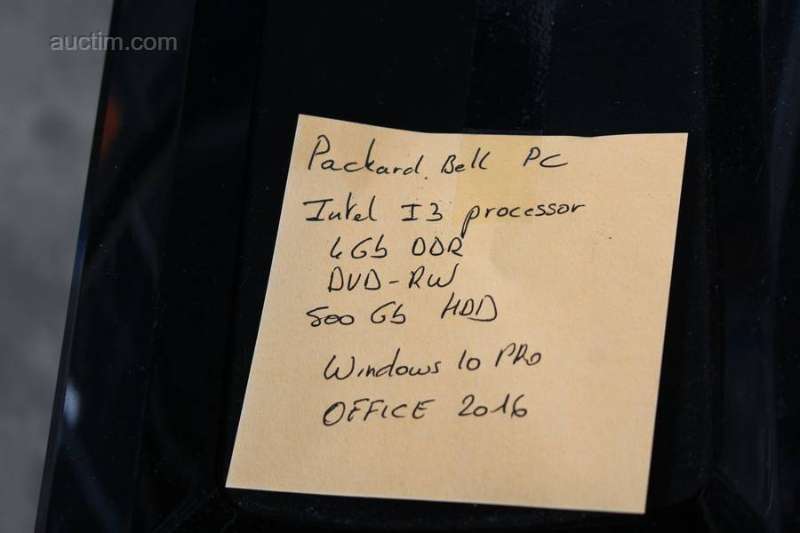 auctim.com
Packard Bell PC
Intel I3 processor
4Gb DDR
DVD-RW
500 Gb HDD
Windows 10 PRO
OFFICE 2016